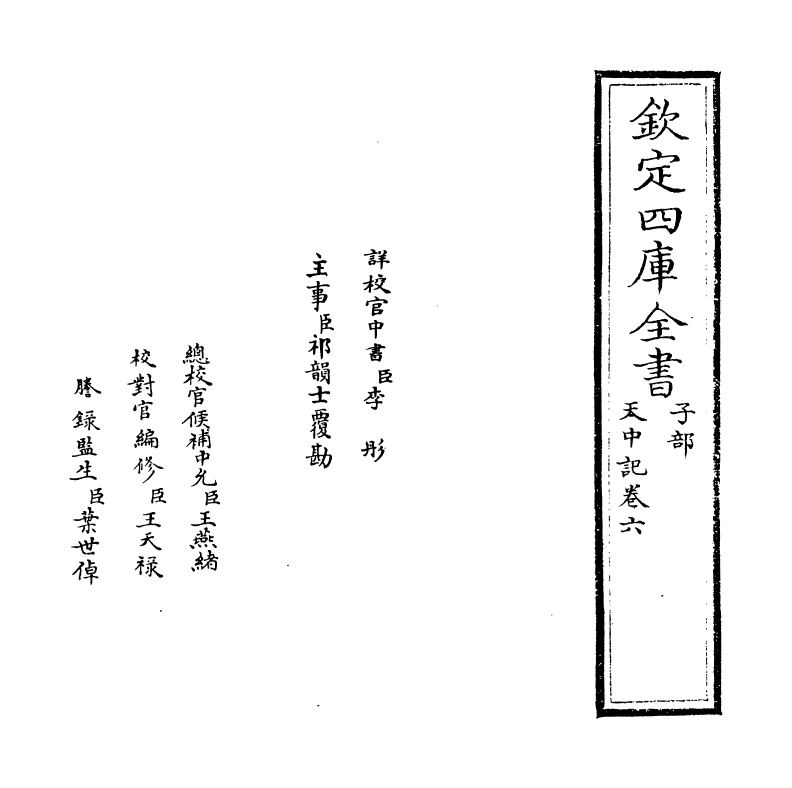 欽定四庫全書
子部
天中記卷六
詳校官中書臣李彤
主事臣祁韻士覆勘
總校官候補中允臣王燕緒
校對官編修臣王天禄
謄録監生臣葉世倬